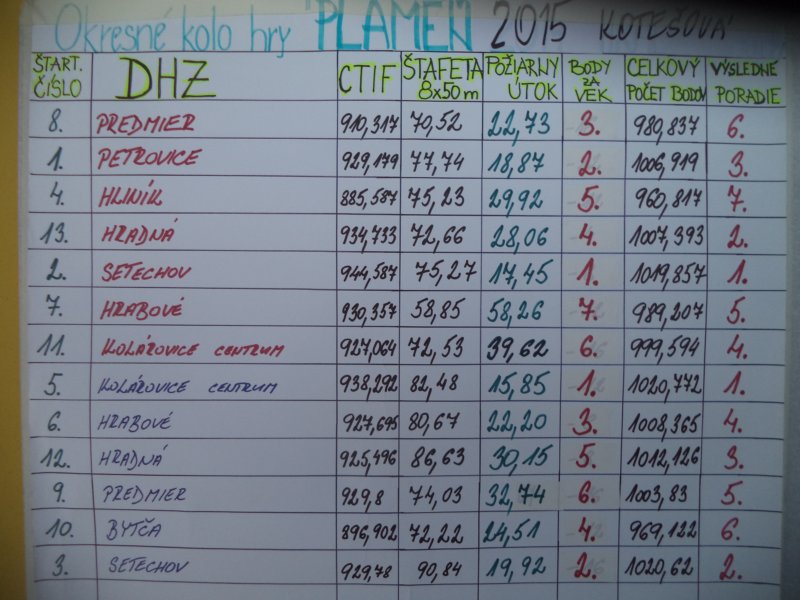 Okresné kolo hry PLAMEŇ 2015 KOTEŠOVÁ
ŠTART. ČÍSLO DHZ CTIF ŠTAFETA 8x50m POŽIARNY ÚTOK BODY ZA VEK CELKOVÝ POČET BODOV VÝSLEDNÉ PORADIE
8. PREDMIER 910,317 70,52 22,73 3. 980,837 6.
1. PETROVICE 929,179 77,74 18,87 2. 1006,919 3.
4. HLINÍK 885,587 75,23 29,92 5. 960,817 7.
13. HRADNÁ 934,733 72,66 28,06 4. 1007,393 2.
2. SETECHOV 944,587 75,27 17,45 1. 1019,857 1.
7. HRABOVÉ 930,357 58,85 58,26 7. 989,207 5.
11. KOLÁROVICE CENTRUM 927,064 72,53 39,62 6. 999,594 4.
5. KOLÁROVICE CENTRUM 938,292 82,48 15,85 1. 1020,772 1.
6. HRABOVÉ 927,695 80,67 22,20 3. 1008,365 4.
12. HRADNÁ 925,496 86,63 30,15 5. 1012,126 3.
9. PREDMIER 929,8 74,03 32,74 6. 1003,83 5.
10. BYTČA 896,902 72,22 24,51 4. 969,122 6.
3. SETECHOV 929,78 90,84 19,92 2. 1020,62 2.